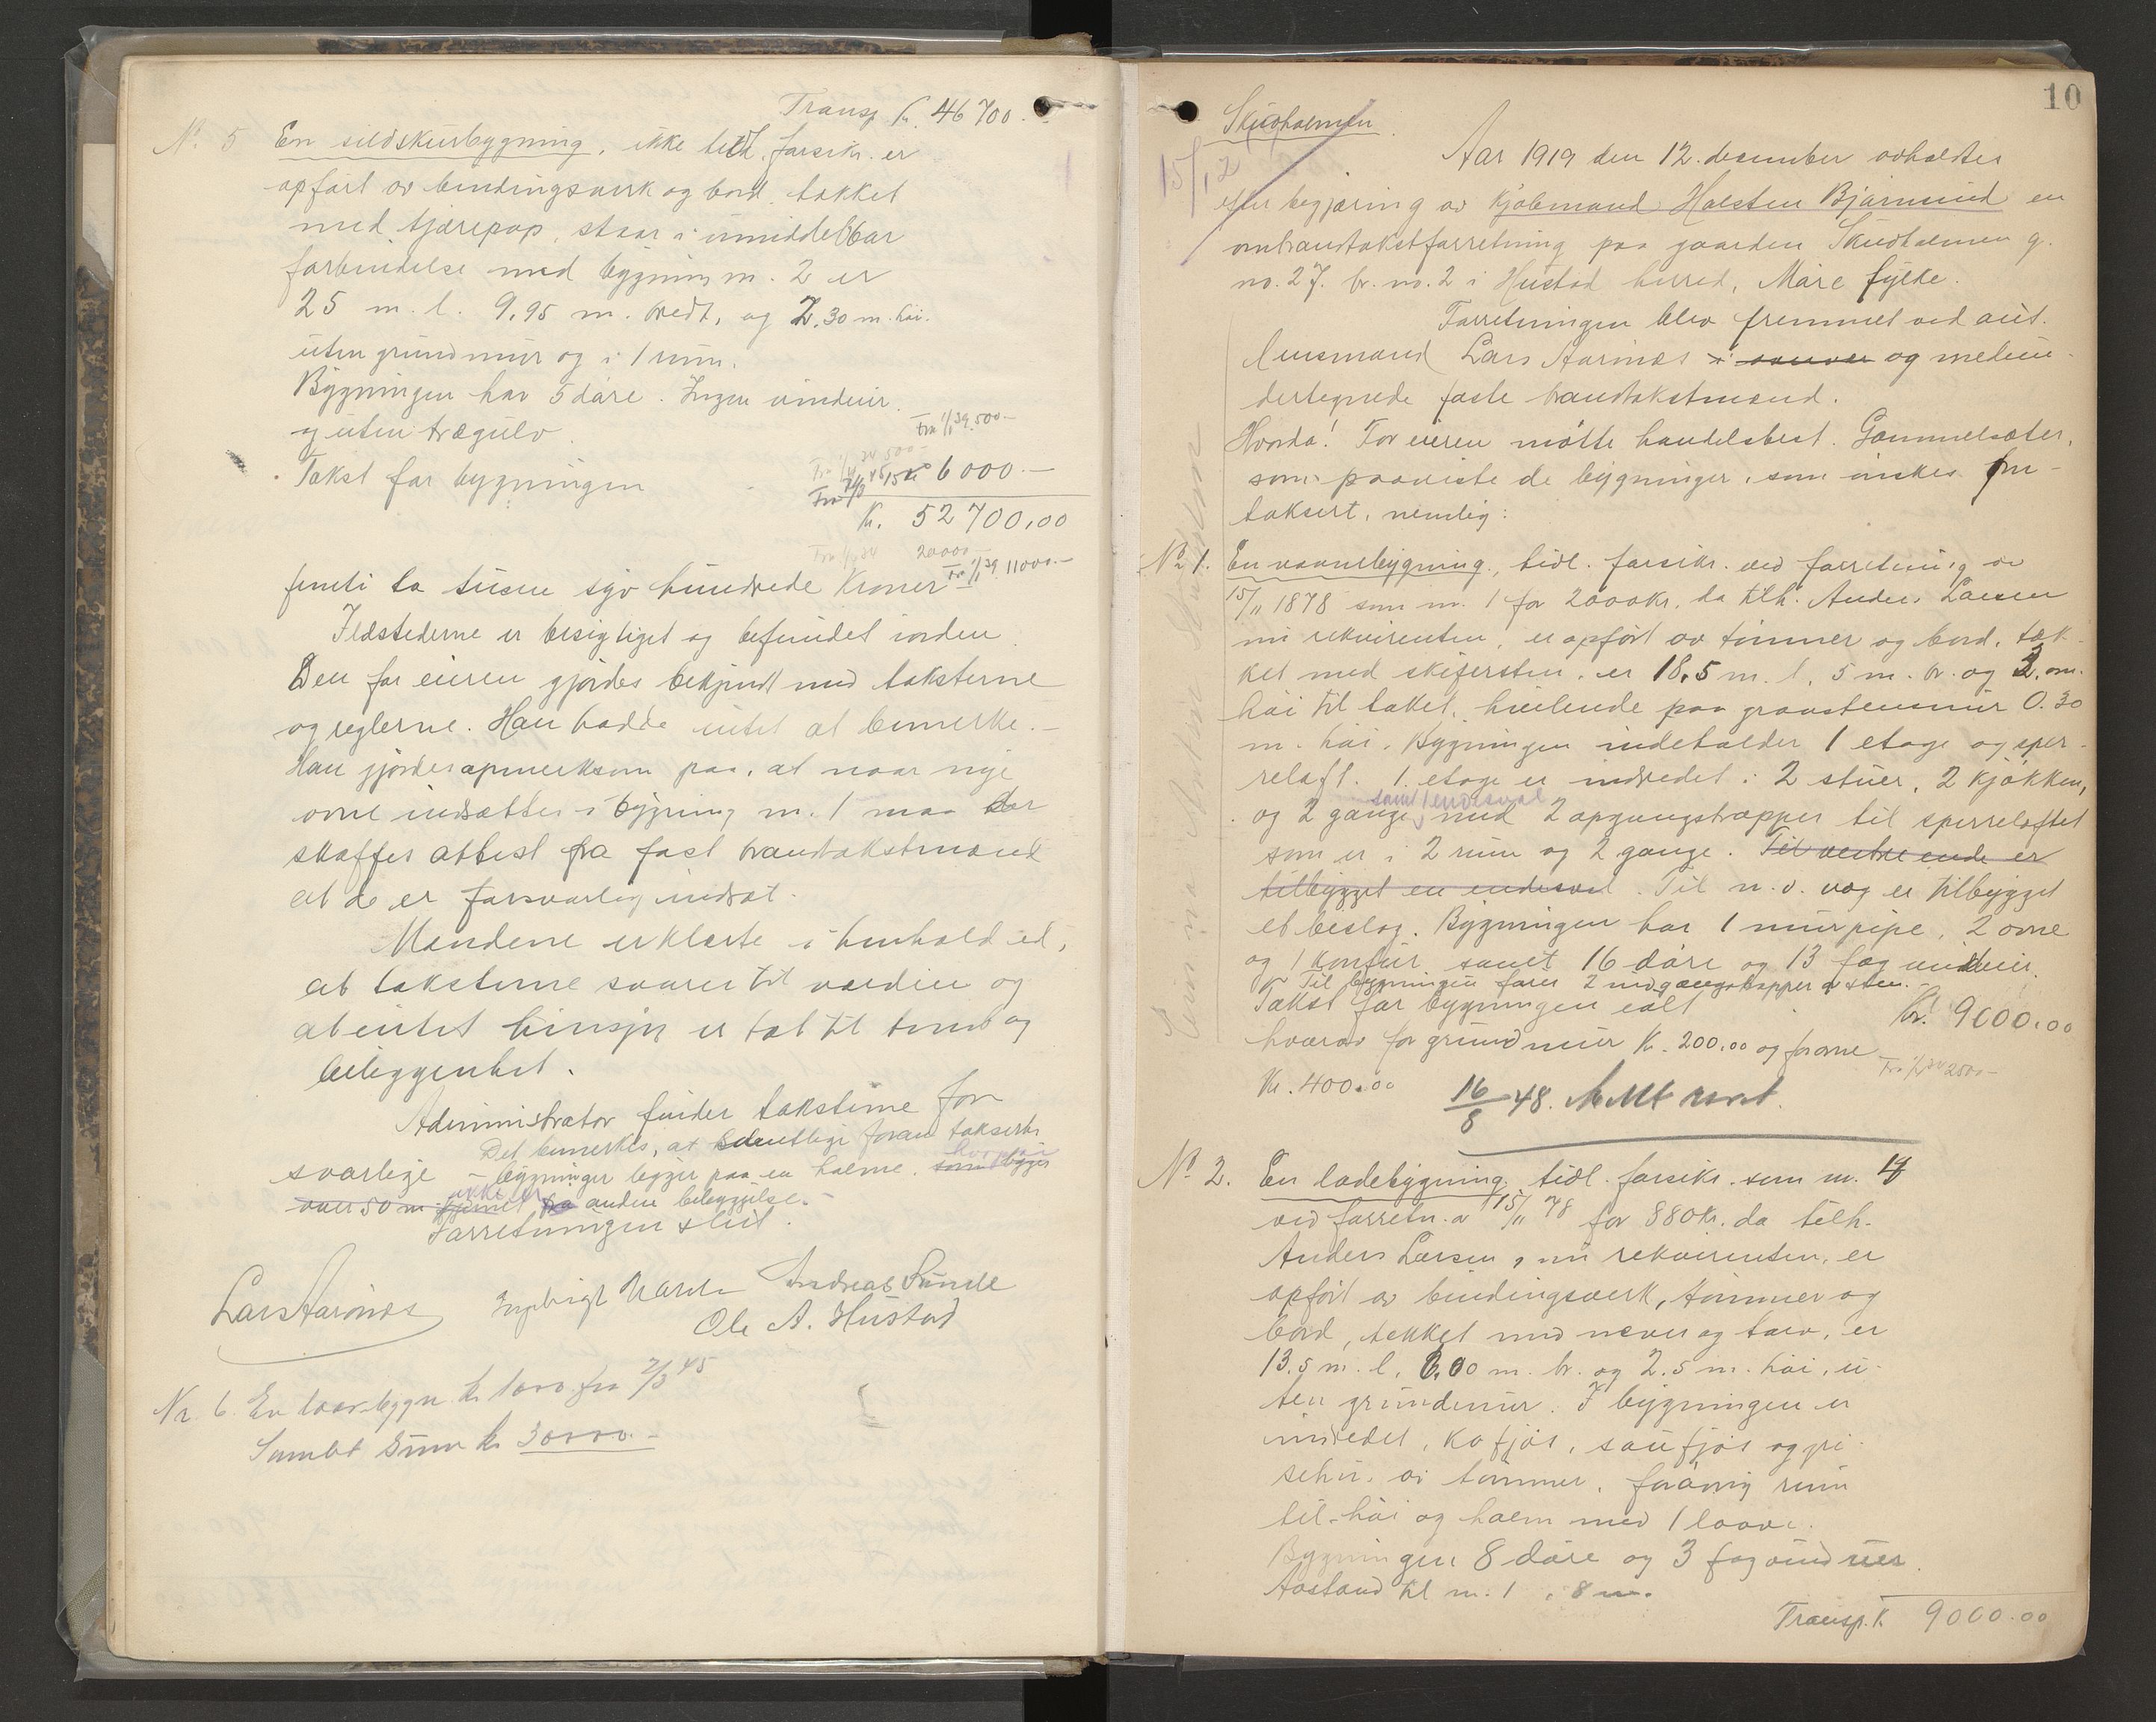 Transp. Kr. 46 700.-
No. 5 En sildskurbygning, ikke tidl. forsikr. er
opført av bindingsverk og bord, tækket
med tjærepap, staar i umiddelbar
forbindelse med bygning nr. 2 er
25 m. l. 9,95 m. bredt, og 2,30 m. høi.
uten grundmur og i 1 rum.
Bygningen har 5 døre. Ingen vinduer
og uten trægulv.
Fra 1/1 39. 500.-
Takst for bygningen 6000.-
Kr. 52 700,00
20000
Fra 1/1 39 11000.-
femti to tusen syv hundrede Kroner
Ildstederne er besigtiget og befundet iorden.
Den for eieren gjordes bekjendt med taksterne
og reglerne. Han hadde intet at bemerke.-
Han gjordes opmerksom paa, at naar nye
ovne indsættes i bygning nr. 1 maa der
skaffes attest fra fast brandtakstmand
at de er forsvarlig indsat.
Mændene erklærte i henhold ed,
at taksterne svarer til værdien og
at intet hinsyn er tat til tomt og
beliggenhet.
Administrator finder taksterne for
svarlige - Det bemerkes, at samtlige foran takserte
bygninger ligger paa en holme, som ligger hvorpaa
over 50 m fjernet fra ikke er anden bebyggelse.-
Forretningen slut.
Lars Aarønæs Andreas Sunde
Ole A. Hustad
Nr. 6. En laavebygn. kr. 1000 fra 2/3 45
Samlet sum kr. 30000.-
10
Skudholmen
15/12
Aar 1919 den 12. desember avholdtes
efter begjæring av kjøbmand Halsten Bjørnsund en
ombrandtakstforretning paa gaarden Skudholmen g.
no. 27. br. no. 2 i Hustad herred, Møre fylke.
Forretningen blev fremmet ved aut.
lensmand Lars Aarønæs og medun-
dertegnede faste brandtakstmænd.
Hvorda! For eieren møtte handelsbest. Gammelsæter,
som paaviste de bygninger, som ønskes om-
taksert, nemlig:
No 1. En vaanebygning, tidl. forsikr. ved forretning av
15/11 1878 som nr. 1 for 2000 kr. da tilh. Anders Larsen
nu rekvirenten, er opført av tømmer og bord, tæk-
ket med skifersten, er 18,5 m. l. 5 m. br. og 3, m.
høi til taket, hvilende paa graastensmur 0.30
m. høi. Bygningen indeholder 1 etage og sper-
reloft. 1. etage er indredet i 2 stuer, 2 kjøkken,
og 2 gange, samt 1 endesval med 2 opgangstrapper til sperreloftet
som er i 2 rum og 2 gange. Til vestre ende er
tilbygget en endesval. Til n. v. væg er tilbygget
et beslag. Bygningen har 1 murpipe, 2 ovne
og 1 komfur samt 16 døre og 13 fag vinduer.
Til bygningen fører 2 indgangstrapper av sten.-
Takst for bygningen ialt Kr. 9000.00
hvorav for grundmur Kr. 200.00 og for ovne
Kr. 400.00
16/8 48.
No 2. En ladebygning, tidl. forsikr. som nr. 4
ved forretn. av 15/11 78 for 880 kr. da tilh.
Anders Larsen, nu rekvirenten, er
opført av bindingsverk, tømmer og
bord, tækket med næver og torv, er
13.5 m. l. 6.00 m. br. og 2.5 m. høi, u-
ten grundmur. I bygningen er
indredet, kofjøs, saufjøs og gri-
sehus av tømmer, forøvrig rum
til høi og halm med 1 laave.
Bygningen 8 døre og 3 fag vinduer.
Avstand til nr. 1 8 m.
Transp. Kr. 9000.00